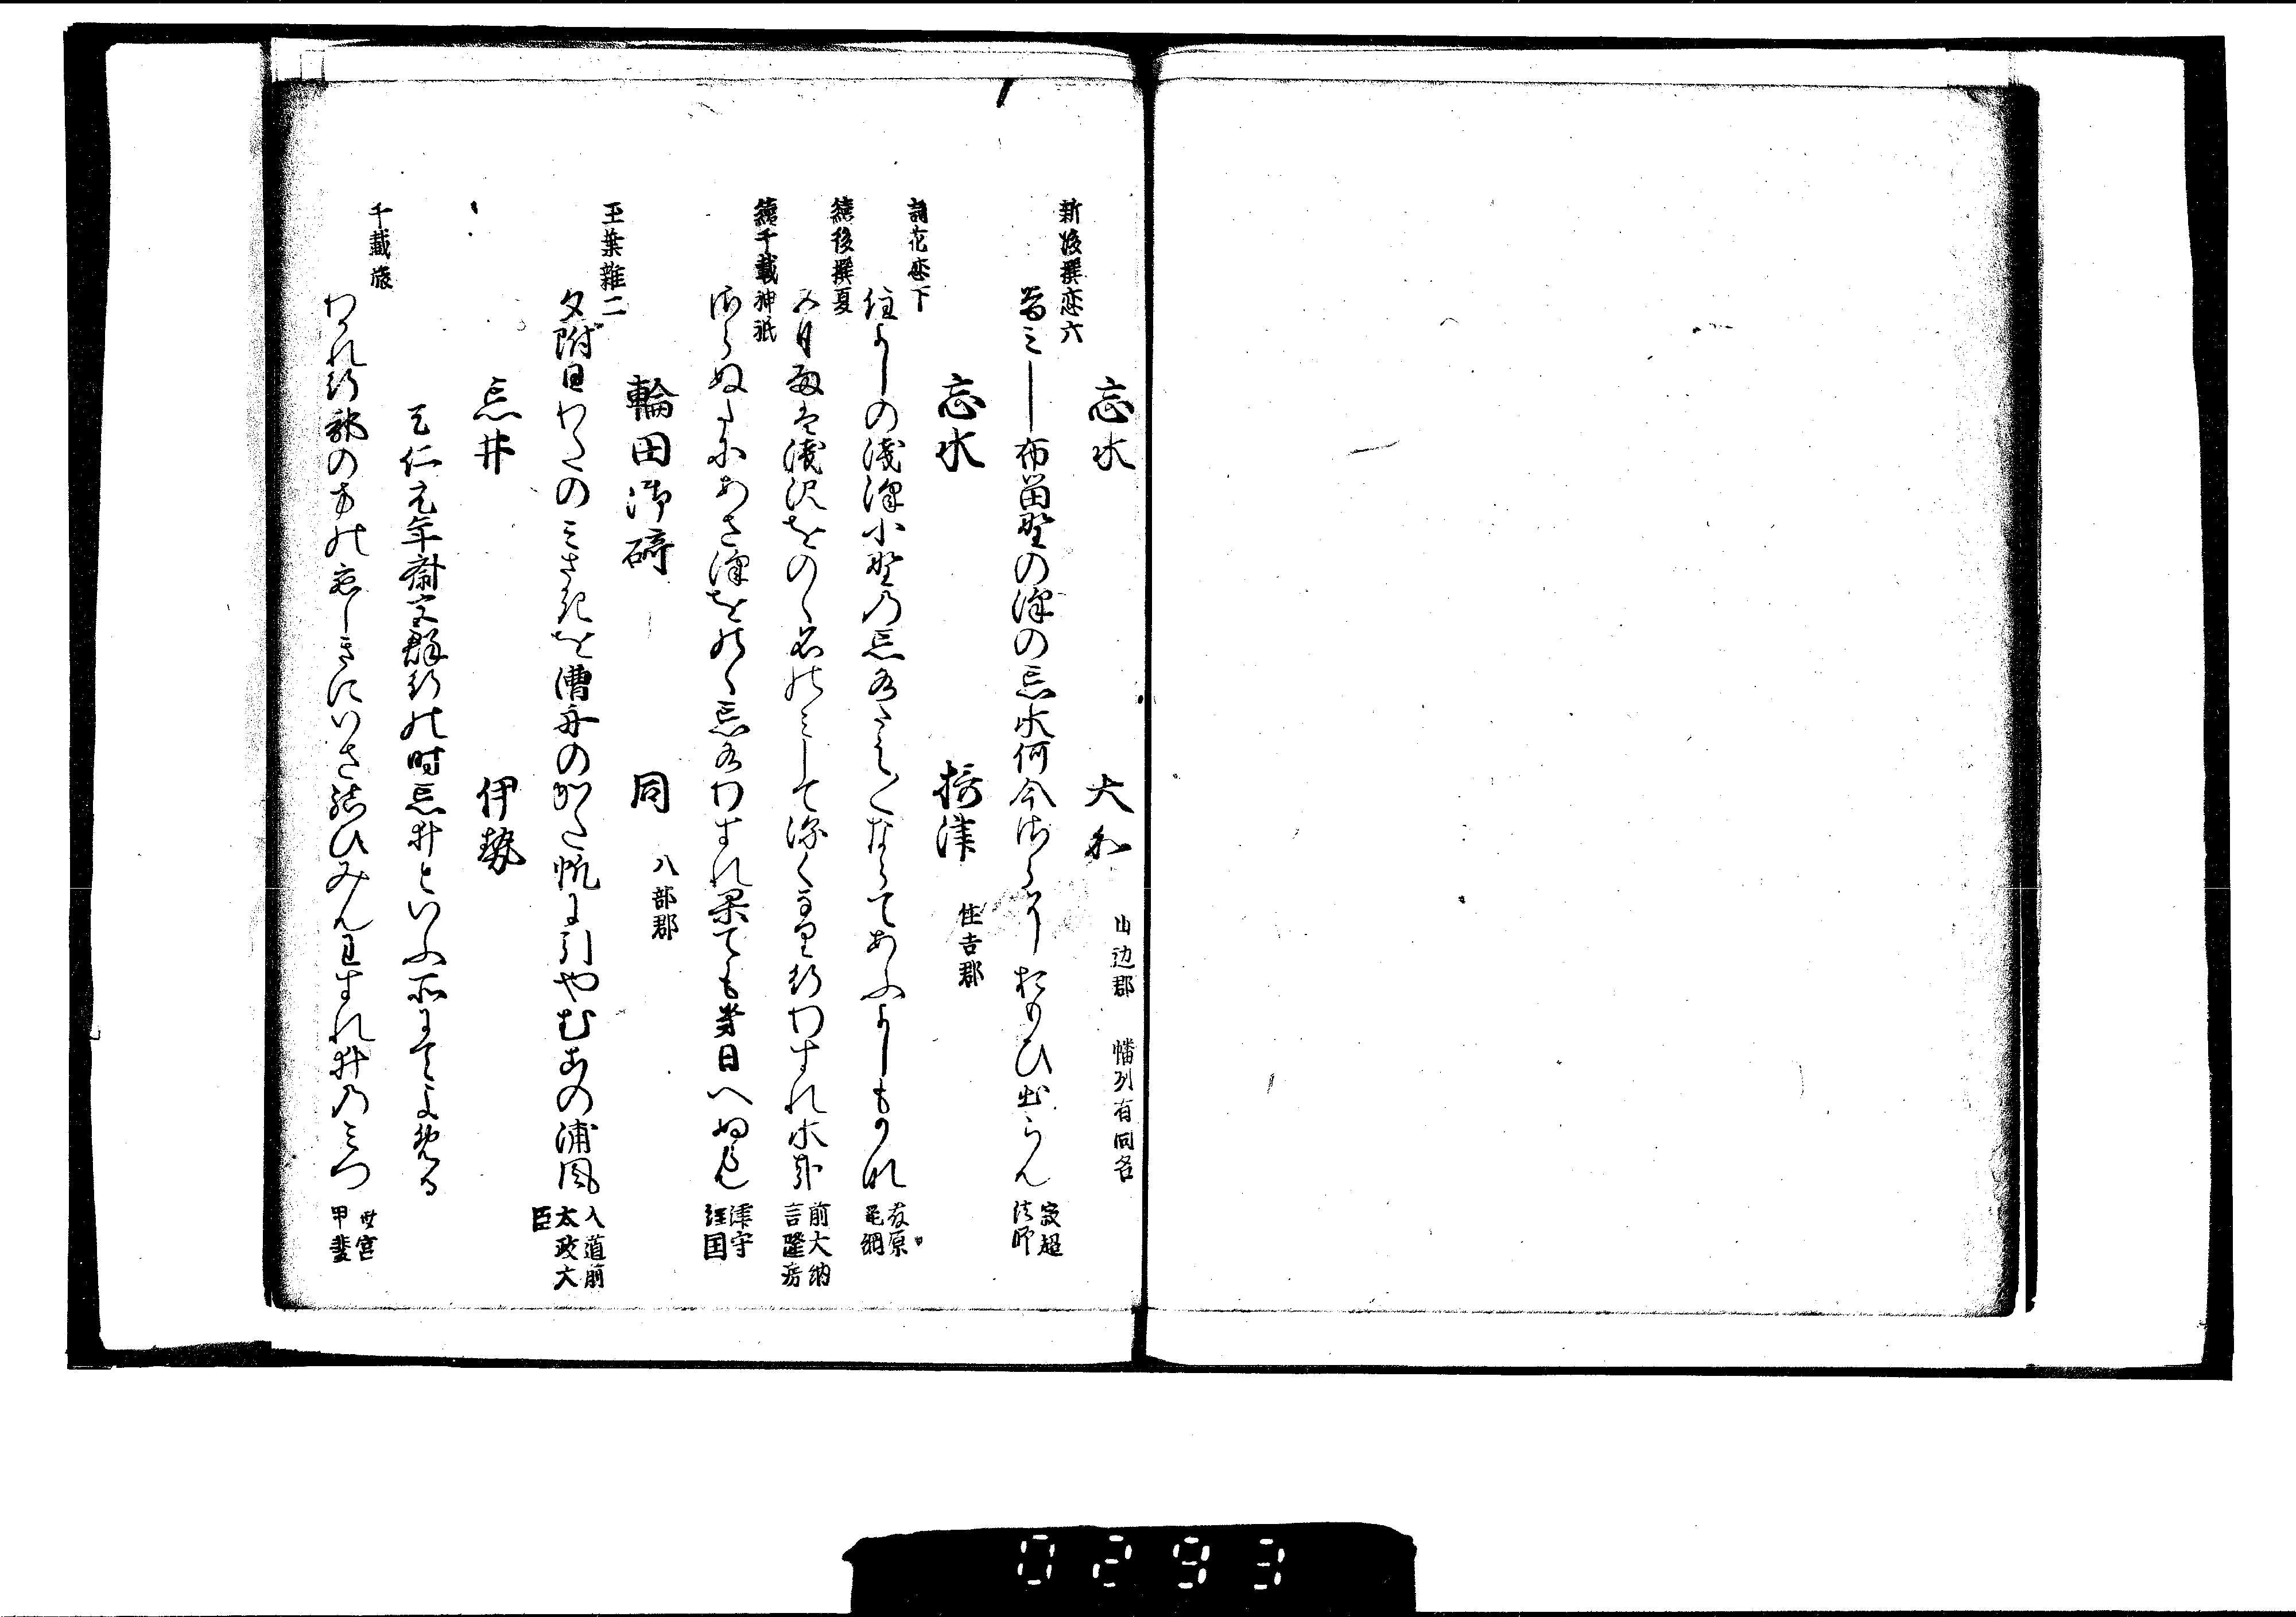 忘水　大和　山辺郡　幡列有同名
新後撰恋六
昔みし布留野の沢の忘水何今さらにおもひ出らん　寂超法師
忘水　摂津　住吉郡
詞花恋下
住よしの浅沢小野の忘水たえ〳〵ならてあふよしもかな　藤原範綱
続後撰夏
五月雨は浅沢をのゝ名のみして深くなり行わすれ水哉　前大納言隆房
続千載神祇
しらぬまにあさ沢をのゝ忘水わすれ果ても
へぬ　津守経国
輪田御碕　同　八部郡
玉葉雑二
夕附日わたのみさきを漕舟のかた帆に引やむこの浦風　入道前太政大臣
忘井　伊勢
天仁元年斎宮群行の時忘井といふ所にてよめる
千載旅
わかれ行都のかたの恋しきにいさ結ひみんわすれ井のみつ　斎宮甲斐
0293